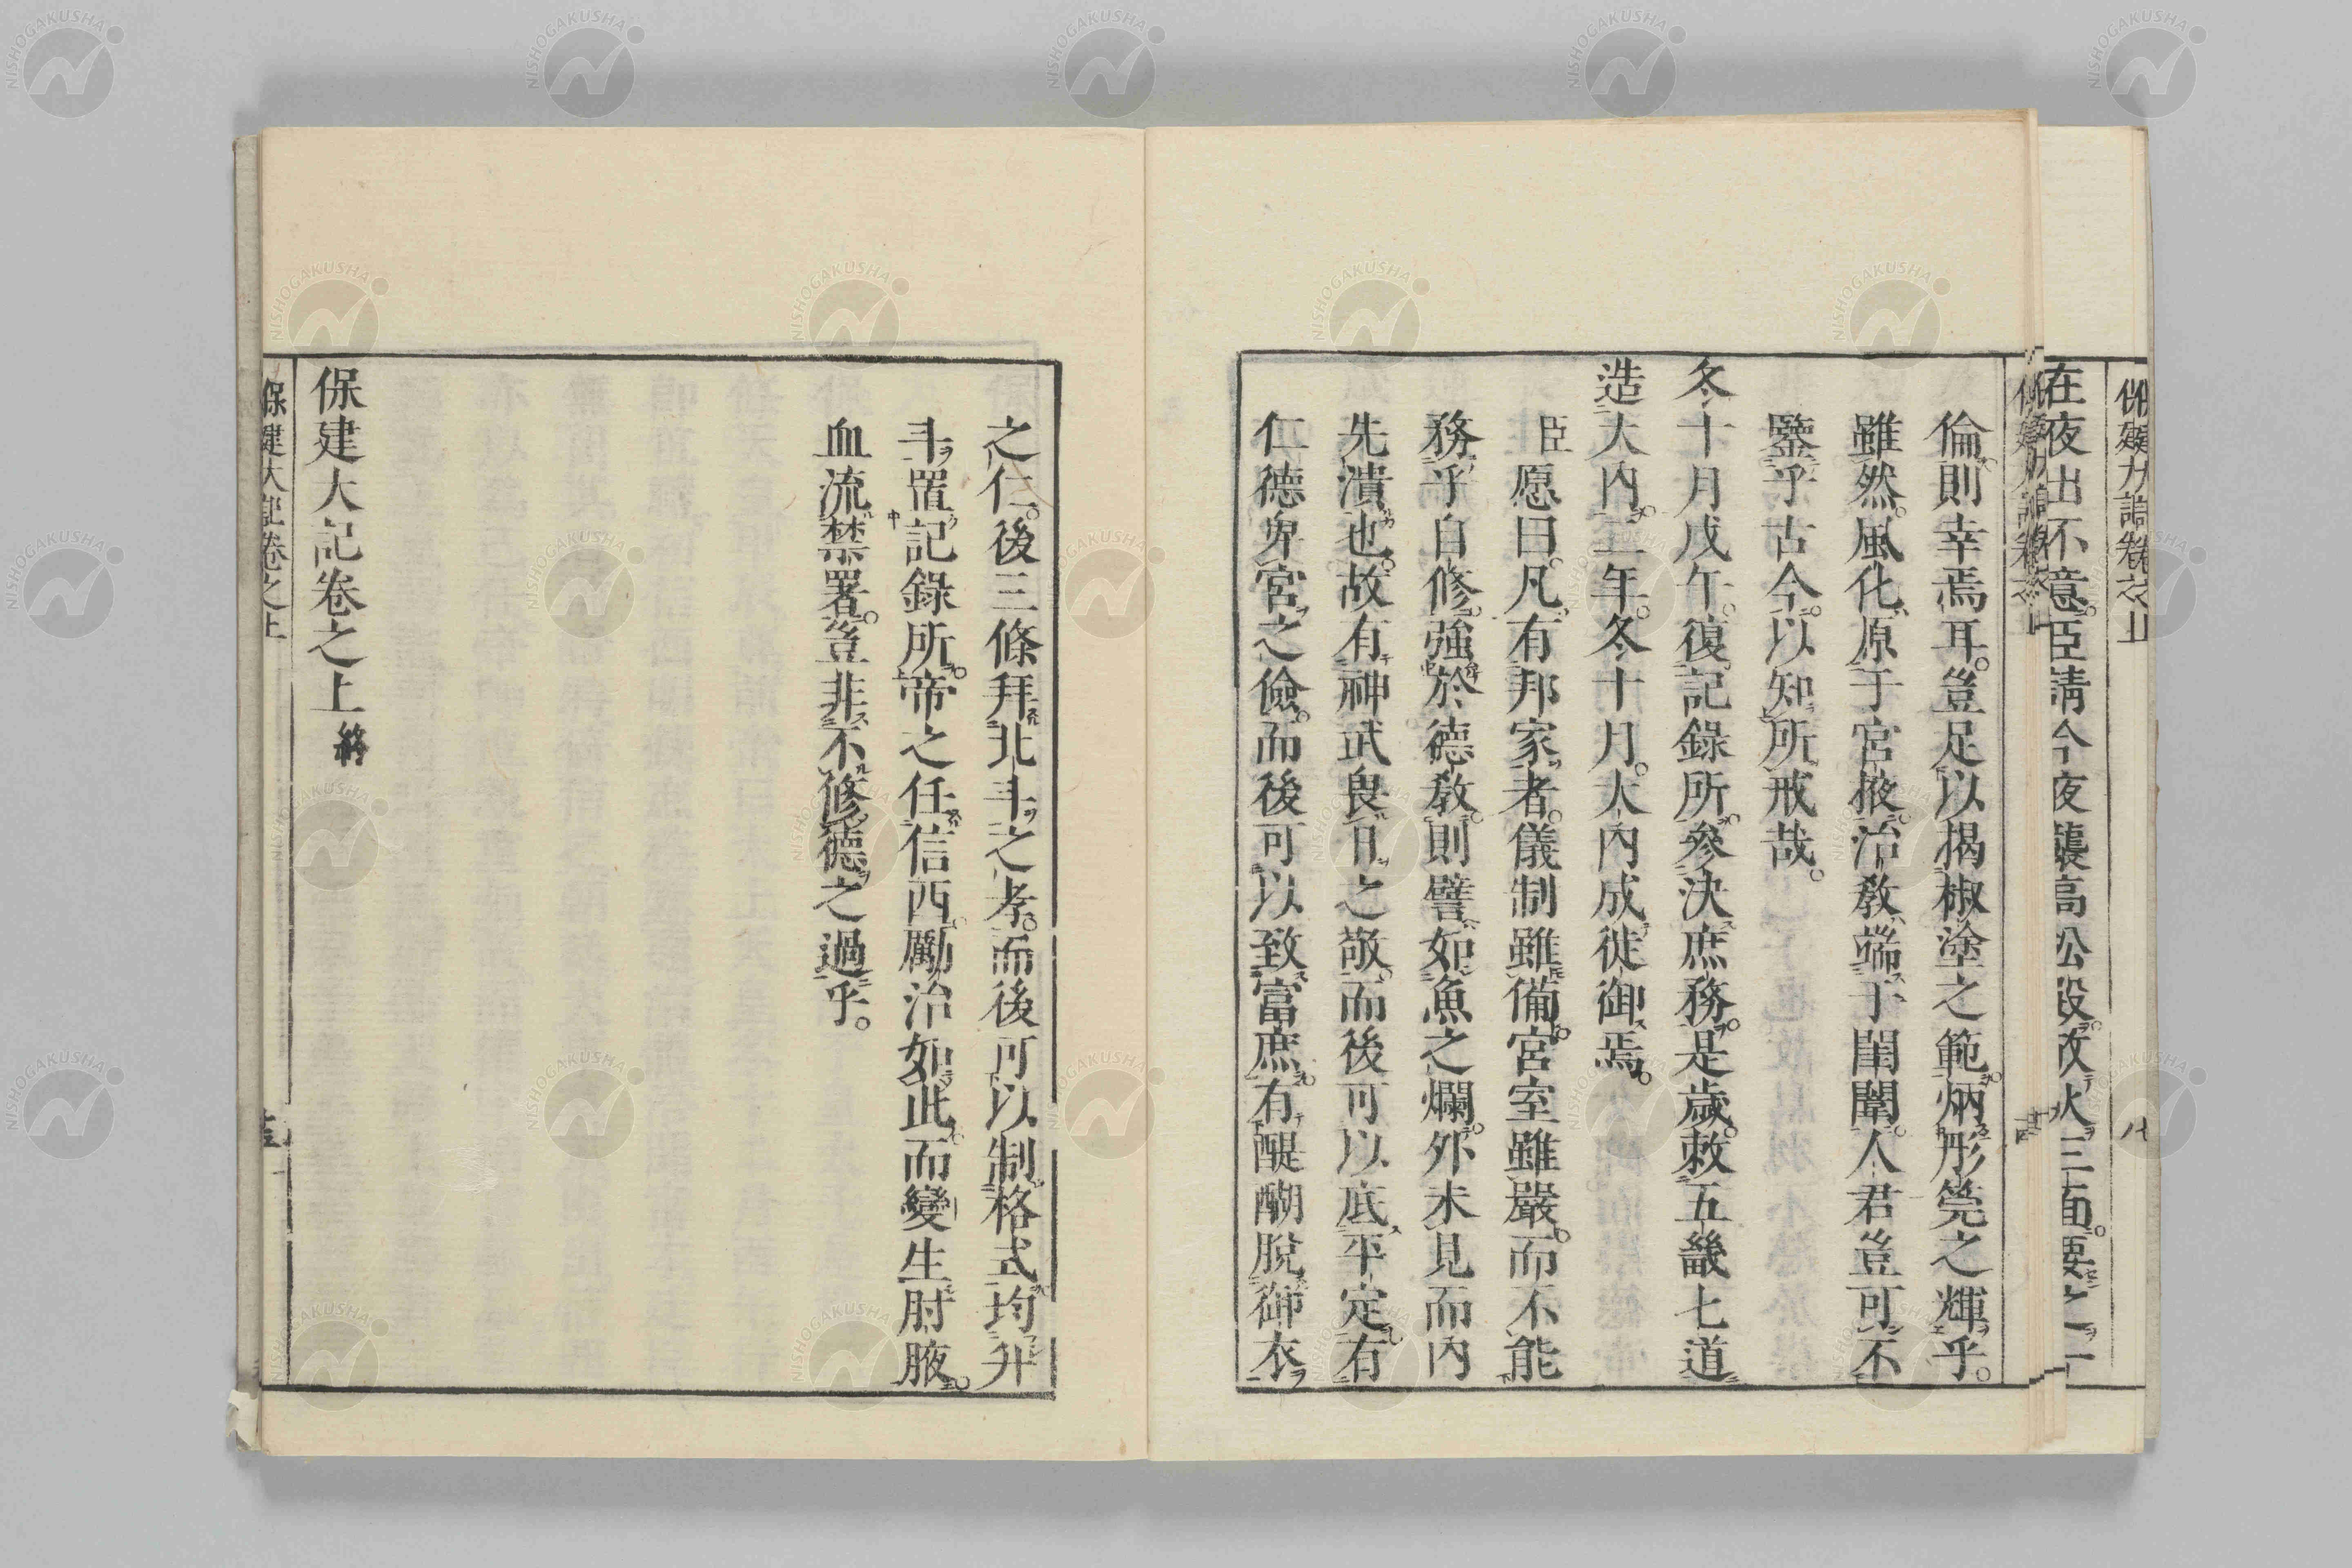 在夜出不意臣請今夜襲高松殿放火三面要之一
倫則幸焉耳。豈足以揭椒塗之範。炳彤筦之輝乎。
雖然。風化原于宮掖。治教端于閨闈。人君豈可不
鑒乎古今。以知所戒哉。
冬十月戊午。復記錄所。參決庶務。是歲。敕五畿七道
造大內。二年。冬十月。大內成。徙御焉。
臣愿曰。凡有邦家者。儀制雖備。宮室雖嚴。而不能
務乎自修。強於德教。則譬如魚之爛。外未見而內
先潰也。故有神武畏日之敬。而後可以底平定。有
仁德卑宮之儉。而後可以致富庶。有醍醐脫御衣
之仁。後三條拜北斗之孝。而後可以制格式均升
斗。置記錄所。帝之任信西。勵治如此。而變生肘腋。
血流禁署。豈非不修德之過乎。
保建大記卷之上 終
保建大記卷之上
NISHOGAKUSHA